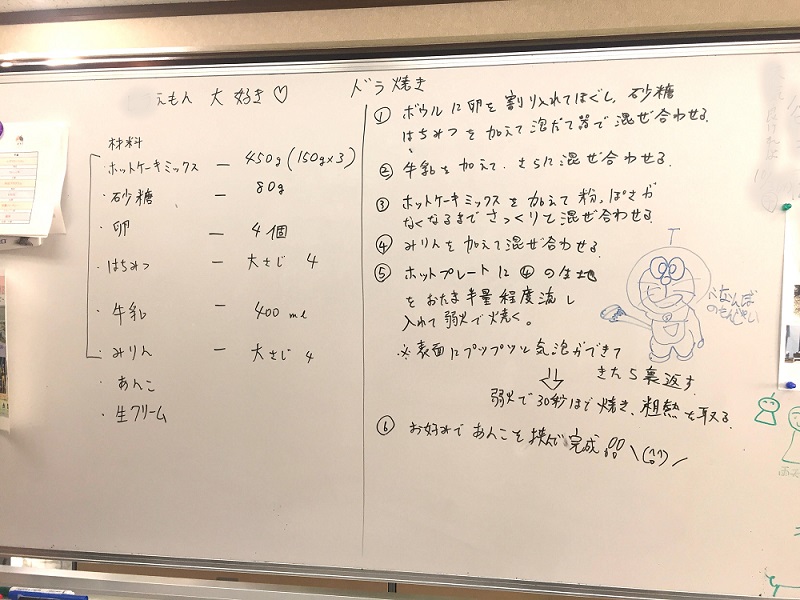 えもん 大好き♡ ドラ焼き
材料
ホットケーキミックス ー 450g(150g×3)
・砂糖 ー 80g
・卵 ー 4個
・はちみつ ー 大さじ 4
・牛乳 ー 400ml
・みりん ー 大さじ 4
・あんこ
・生クリーム
① ボウルに卵を割り入れてほぐし、砂糖
はちみつを加えて泡だて器で混ぜ合わせる.
② 牛乳を加えて、さらに混ぜ合わせる.
③ ホットケーキミックスを加えて粉っぽさが
なくなるまでさっくりと混ぜ合わせる.
④ みりんを加えて混ぜ合わせる.
⑤ ホットプレートに④の生地
をおたま半量程度流し
入れて弱火で焼く。
※表面にプップツと気泡ができて
きたら裏返す.
⇓
弱火で30秒ほど焼き、粗熱を取る.
⑥ お好みであんこを挟んで完成!!\(^^)/